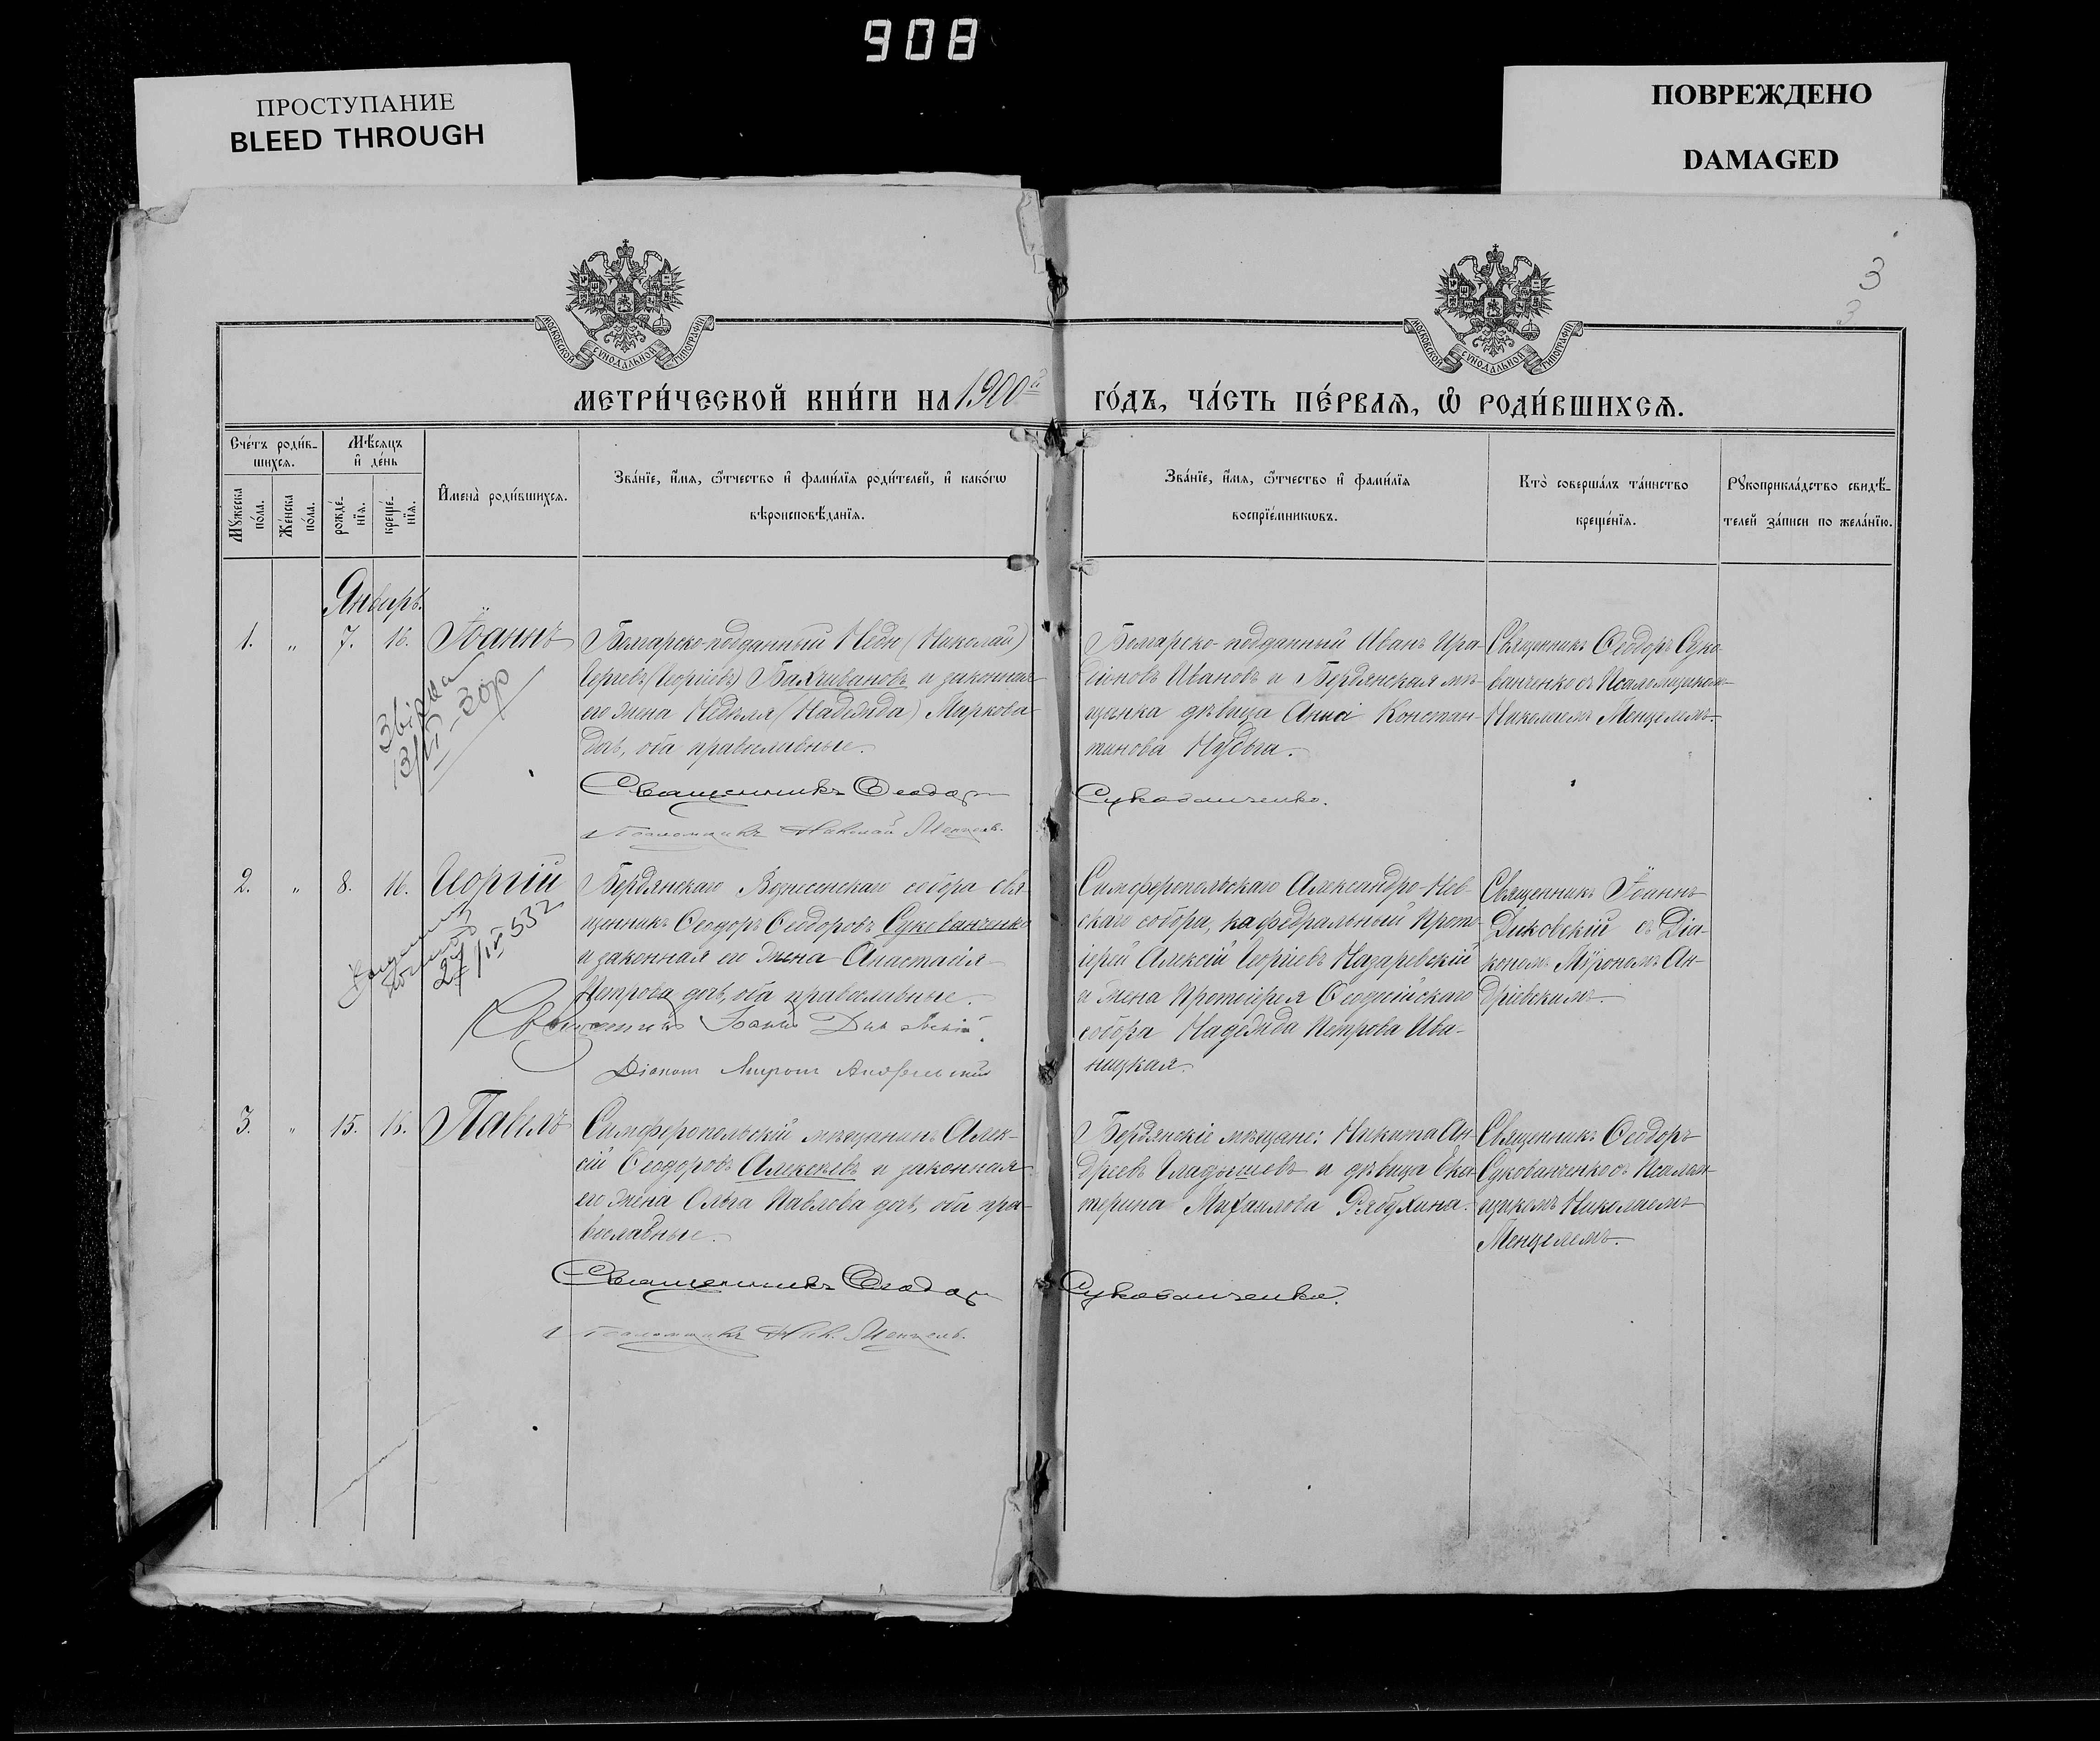 908
ПРОСТУПАНИЕ
BLEED THROUGH
ПОВРЕЖДЕНО
DAMAGED
3
3
МОСКОВСКОЙ СѴНОДАЛЬНОЙ ТИПОГРАФІИ
МОСКОВСКОЙ СѴНОДАЛЬНОЙ ТИПОГРАФІИ
МЕТРИ́ЧЕСКОЙ КНИ́ГИ НА 1900й ГО́ДЪ, ЧА́СТЬ ПЕ́РВАѦ, Ѡ РОДИ́ВШИХСѦ.
Счётъ роди́в-
шихсѧ.
Мѣсѧцъ
и де́нь
Мꙋжеска
по́ла.
Же́нска
по́ла.
рожде́-
нїѧ.
креще́-
нїѧ.
Имена̀ роди́вшихсѧ.
Зва́нїе, и́мѧ, ѻ́тчество и фами́лїѧ роди́телей, и како́гѡ
вѣроисповѣ́данїѧ.
Зва́нїе, и́мѧ, ѻ́тчество и фами́лїѧ
воспрїе́мникѡвъ.
Кто̀ соверша́лъ та́инство
креще́нїѧ.
Рꙋкоприкла́дство свидѣ́-
телей за́писи по жела́нїю.
Январь.
1. „ 7. 16. Іоаннъ
Болгарско-подданный Недю (Николай)
Георгіевъ (Георгіевъ) Бахчивановъ и законная
его жена Недѣля (Надежда) Маркова
доч., оба православные.
Болгарско-подданный Иванъ Ира-
Иванова и Бердянская мѣ-
щанка дѣвица Анна Констан-
тинова
Священникъ Ѳеодоръ Суко-
ванченко съ Псаломщикомъ
Николаемъ Менцелемъ.
13/VI-30р
Священникъ Ѳеодор Сукованченко.
Псаломщикъ Николай Менцель.
2. „ 8. 16. Георгій
Бердянскаго Вознесенскаго собора свя-
щенникъ Ѳеодоръ Ѳеодоровъ Сукованченко
и законная его жена Анастасія
Петрова доч., оба православные.
Симферопольскаго Александро-Нев-
скаго собора, кафедральный Прото-
іерей Алексій Георгіевъ Назаревскій
и жена Протоіерея Ѳеодосійскаго
собора Надежда Петрова Ива-
ницкая.
Священникъ Іоаннъ
Диковскій съ Діа-
кономъ Мѵрономъ Ан-
дріевскимъ.
Священникъ Іоаннъ Диковскій
Діаконъ Миронъ Андріевскій
3. „ 15. 16. Павелъ
Симферопольскій мѣщанинъ Алек-
сій Ѳеодоровъ Алексѣевъ и законная
его жена Ольга Павлова доч., оба пра-
вославные.
Бердянскіе мѣщане: Никита Ан-
дреевъ Гладышевъ и дѣвица Ека-
терина Михаилова Рябухина.
Священникъ Ѳеодоръ
Сукованченко съ Псалом-
щикомъ Николаемъ
Менцелемъ.
Священникъ Ѳеодор Сукованченко.
Псаломщикъ Ник. Менцель.